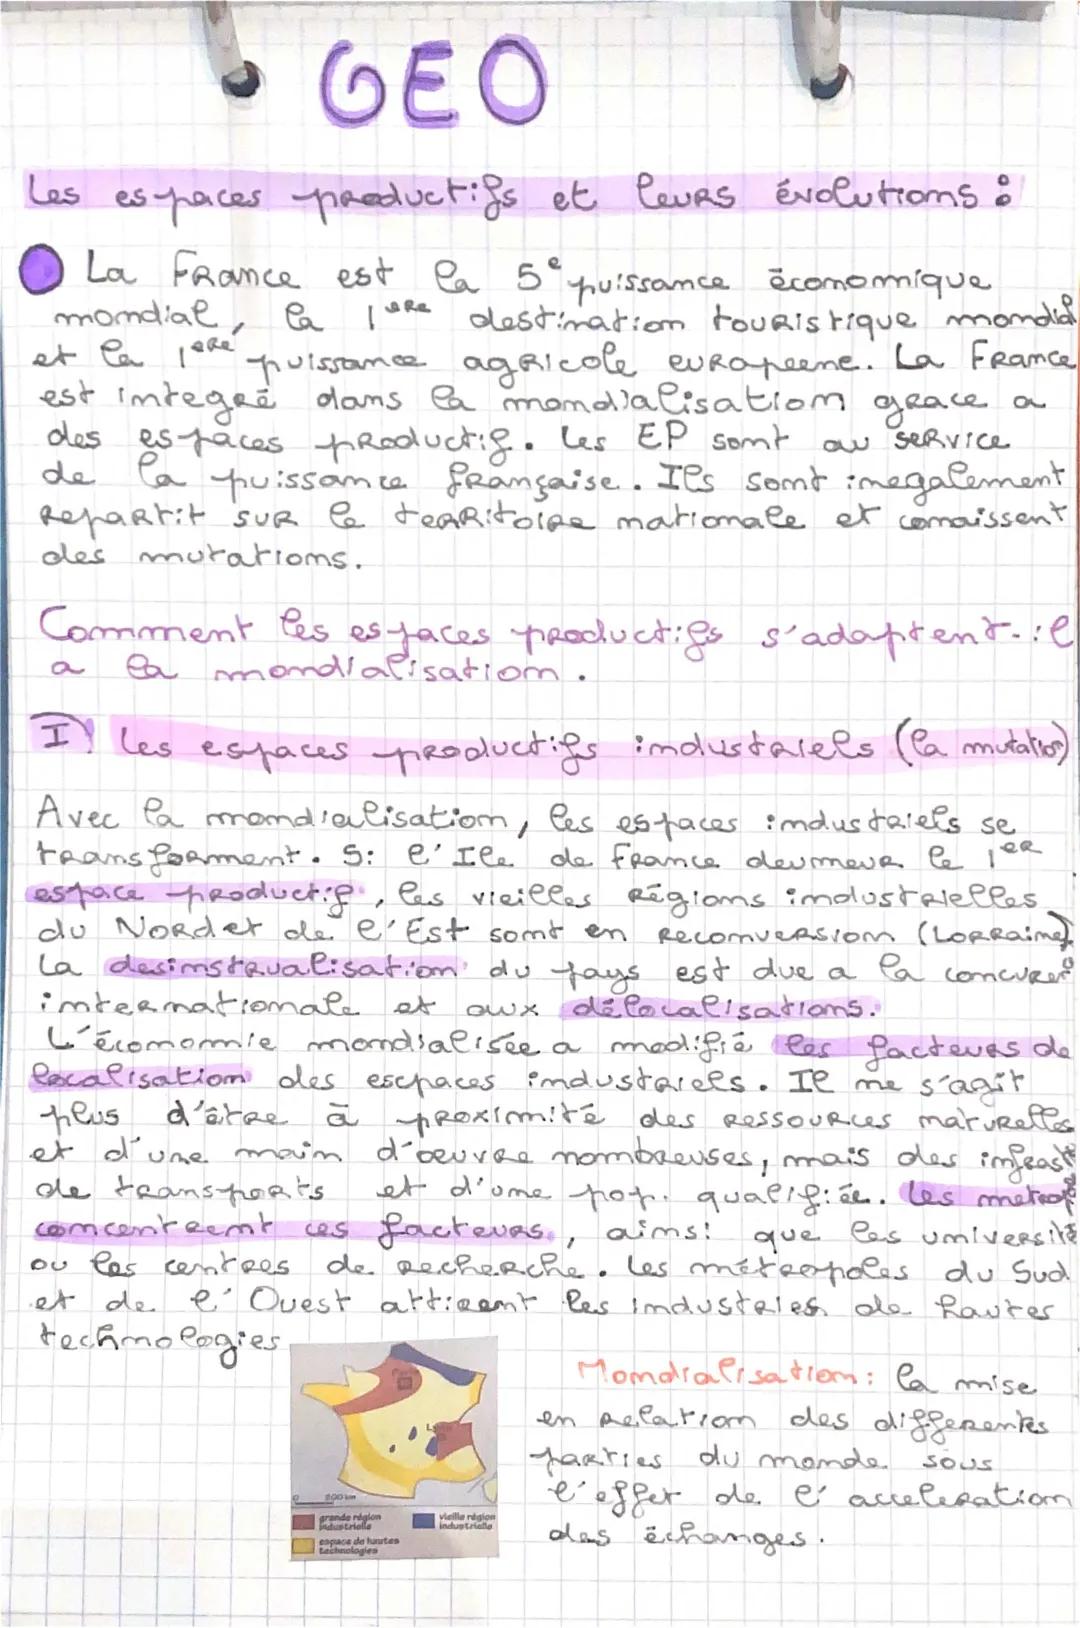 GEO
Les espaces productifs et leurs évolutions :
La France est la 5e puissance économique
mondial, la 1ère destination touristique mondial
et la 1ère puissance agricole europeene. La France
est integré dans la mondialisation grace a
des espaces productif. Les EP sont au service
de la puissance française. Ils sont inegalement
repartit sur le territoire nationale et conaissent
des mutations.
Comment les espaces productifs s'adaptent-il
a la mondialisation.
I) Les espaces productifs industriels (la mutation)
Avec la mondialisation, les espaces industriels se
transforment. Si l'Ile de France deumeur le 1er
espace productif, les vieilles régions industrielles
du Nord et de l'Est sont en reconversion (Lorraine).
La desinstrualisation du pays est due a la
internationale et aux délocalisations.
L'économie mondialisée a modifié les facteurs de
localisation des escpaces industriels. Il ne s'agit
plus d'être à proximité des ressources naturelles
et d'une main d'œuvre nombreuses, mais des
de transports et d'une pop. qualifiée. Les
concentrent ces facteurs, ainsi que les université
ou les centres de recherche. Les métropoles du Sud
et de l'Ouest attirent les industries de hautes
technologies
Paris
Lyon
0 200 km
grande région industrielle
vieille région industrielle
espace de hautes technologies
Mondialisation : la mise
en relation des differentes
parties du monde sous
l'effet de l'acceleration
des échanges.